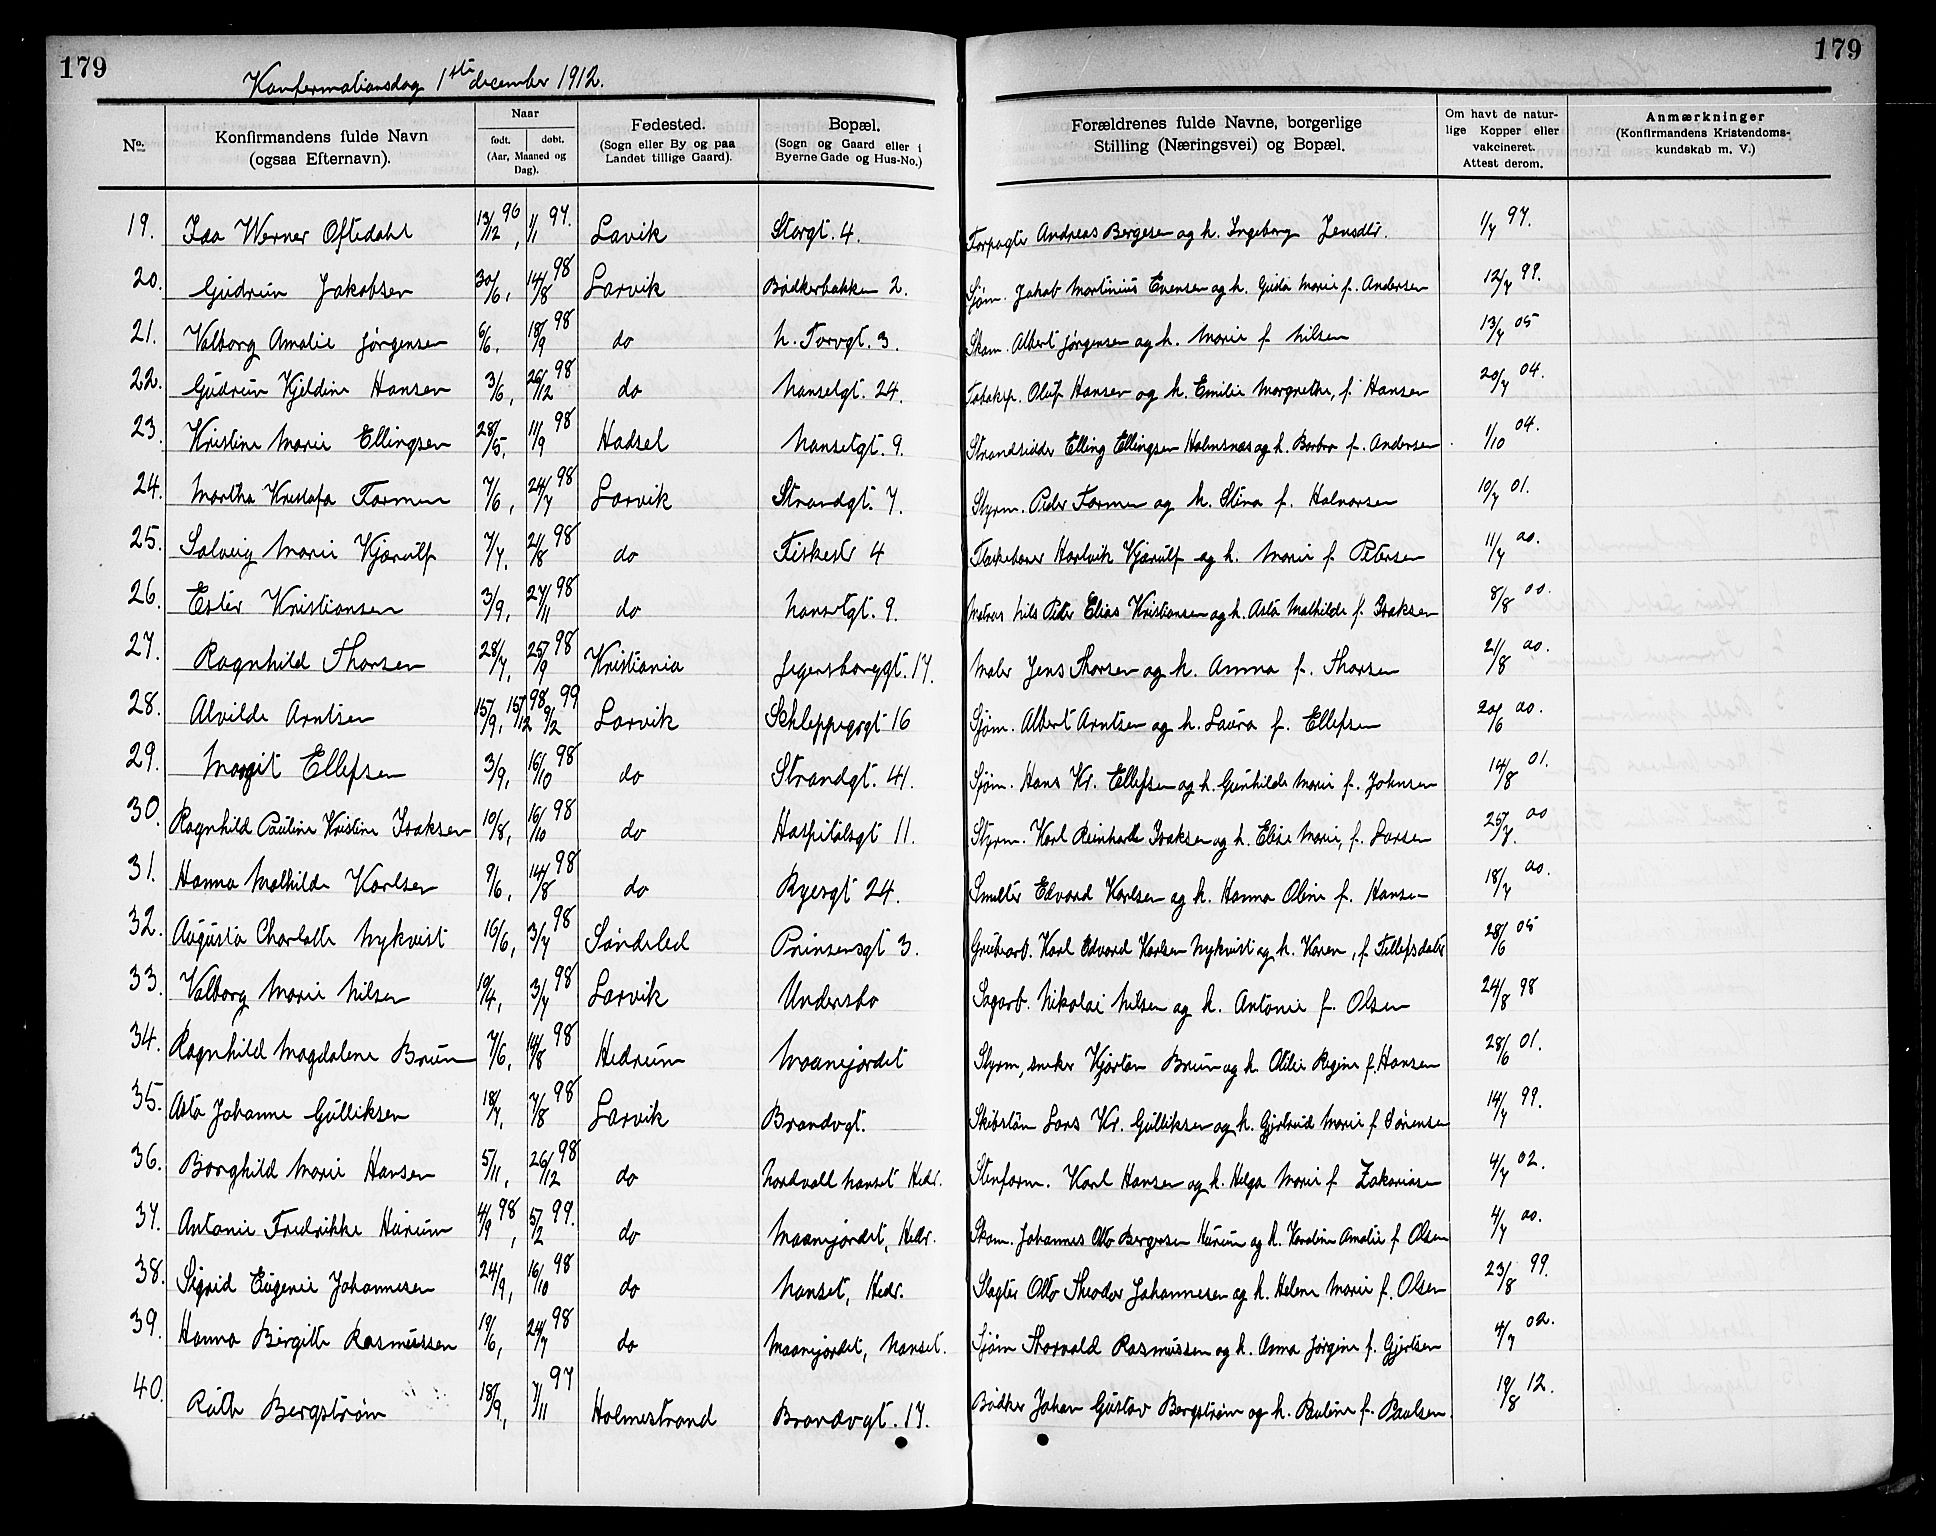 179
179
Konfermationsdag 1ste december 1912.
No. Konfirmandens fulde Navn (ogsaa Efternavn). Naar født. døbt. (Aar, Maaned og Dag). Fødested. (Sogn eller By og paa Landet tillige Gaard). Bopæl. (Sogn og Gaard eller i Byerne Gade og Hus-No.) Forældrenes fulde Navne, borgerlige Stilling (Næringsvei) og Bopæl. Om havt de naturlige Kopper eller vakcineret. Attest derom. Anmærkninger (Konfirmandens Kristendomskundskab m. V.)
19. Ida Werner Oftedahl 13/12 96, 1/1 97. Lavik Storgt. 4. Forpagter Andreas Bergesen og h. Ingeborg Jensdtr. 1/7 97.
20. Gudrun Jakobsen 30/6, 14/8 98 Larvik Bødkerbakken 2. Sjøm. Jakob Martinius Evensen og h. Gusta Marie f. Andersen 12/7 99.
21. Valborg Amalie Jørgensen 6/6, 18/9 98 do N. Torvgt. 3. Skom. Albert Jørgensen og h. Marie f. Nilsen 13/7 05
22. Gudrun Kjeldine Hansen 3/6, 26/12 98 do Nansetgt. 24. Tobaksp. Oluf Hansen og h. Emilie Margrethe, f. Hansen 20/7 04.
23. Kristine Marie Ellingsen 28/5, 11/9 98 Hadsel Nansetgt. 9. Strandsidder Elling Ellingsen Holmsnæs og h. Barbro f. Andersen. 1/10 04.
24. Martha Kristofa Formen 7/6, 24/7 98 Larvik Strandgt. 7. Styrm. Peder Formen og h. Stina f. Halvorsen 10/7 01.
25. Solveig Marie Kjærulf 7/7. 21/8 98 do Fiskestr 4 Harlvik Kjærulf og h. Marie f. Petersen 11/7 00.
26. Ester Kristiansen 3/9, 27/11 98 do Nansetgt. 9. Matros Nils Peter Elias Kristiansen og h. Asta Mathilde f. Isaksen 8/8 00.
27. Ragnhild Thorsen 28/7, 25/9 98 Kristiania Jegersborggt. 17. Maler Jens Thorsen og h. Anna f. Thorsen 21/8 00.
28. Alvilde Arntsen 15/9, 15/12 98 9/2 99 Larvik Schleppegsgt 16 Sjøm. Albert Arntsen og h. Laura f. Ellefsen 20/6 00.
29. Margit Ellefsen 3/9, 16/10 98 do Strandgt. 41. Sjøm. Hans Kr. Ellefsen og h. Gunhilde Marie f. Johnsen 14/8 01.
30. Ragnhild Pauline Kristine Isaksen 10/8, 16/10 98 do Hospitalsgt 11. Styrm. Karl Reinhardt Isaksen og h. Elise Marie, f. Larsen 25/7. 00
31. Hanna Mathilde Karlsen 9/6, 14/8 98 do Ryesgt 24. Smelter Edvard Karlsen og h. Hanna Oline f. Hansen 18/7 00.
32. Augusta Charlotte Nykvist 16/6, 3/7 98 Søndeled Prinsensgt 3. Grubearb. Karl Edvard Karlsen Nykvist og h. Karen, f. Tellefsdatter 28/6 05
33. Valborg Marie Nilsen 19/4, 3/7 98 Larvik Undersbo Sagarb. Nikolai Nilsen og h. Antonie f. Olsen 24/8 98
34. Ragnhild Magdalene Bruun 7/6, 14/8 98 Hedrum Maanejordet Styrm, sneker Kjartan Bruun og h. Otilie Regine f. Hansen 28/6 01.
35. Asta Johanne Gulliksen 18/7, 7/8 98 Larvik Brandvgt. Skibstøm Lars Kr. Gulliksen og h. Gjertrud Marie f. Sørensen 14/7 99.
36. Borghild Marie Hansen 5/11, 26/12 98 do Nordvall Nanset Hedr. Stenform. Karl Hansen og h. Helga Marie f. Zakariasen 4/7 02.
37. Antonie Fredrikke Hurum 4/9 98, 5/2 99. do Maanejordet, Hedr. Skom. Johannes Otto Bergersen Hurum og h. Karoline Amalie f. Olsen 4/7 00.
38. Sigrid Eugenie Johannesen 24/9, 16/10 98 do Nanset, Hedr. Slagter Otto Theodor Johannesen og h. Helene Marie f. Olsen 23/8 99.
39. Hanna Birgitte Rasmussen 19/6, 24/7 98 do Maanejordet, Nanset. Sjøm Thorvald Rasmussen og h. Anna Jørgine f. Gjertsen 4/7 02.
40. Ruth Bergstrøm 18/9, 7/11 97 Holmestrand Brandvgt. 17. Bødker Johan Gustav Bergstrøm og h. Pauline f. Paulsen. 19/8 12.